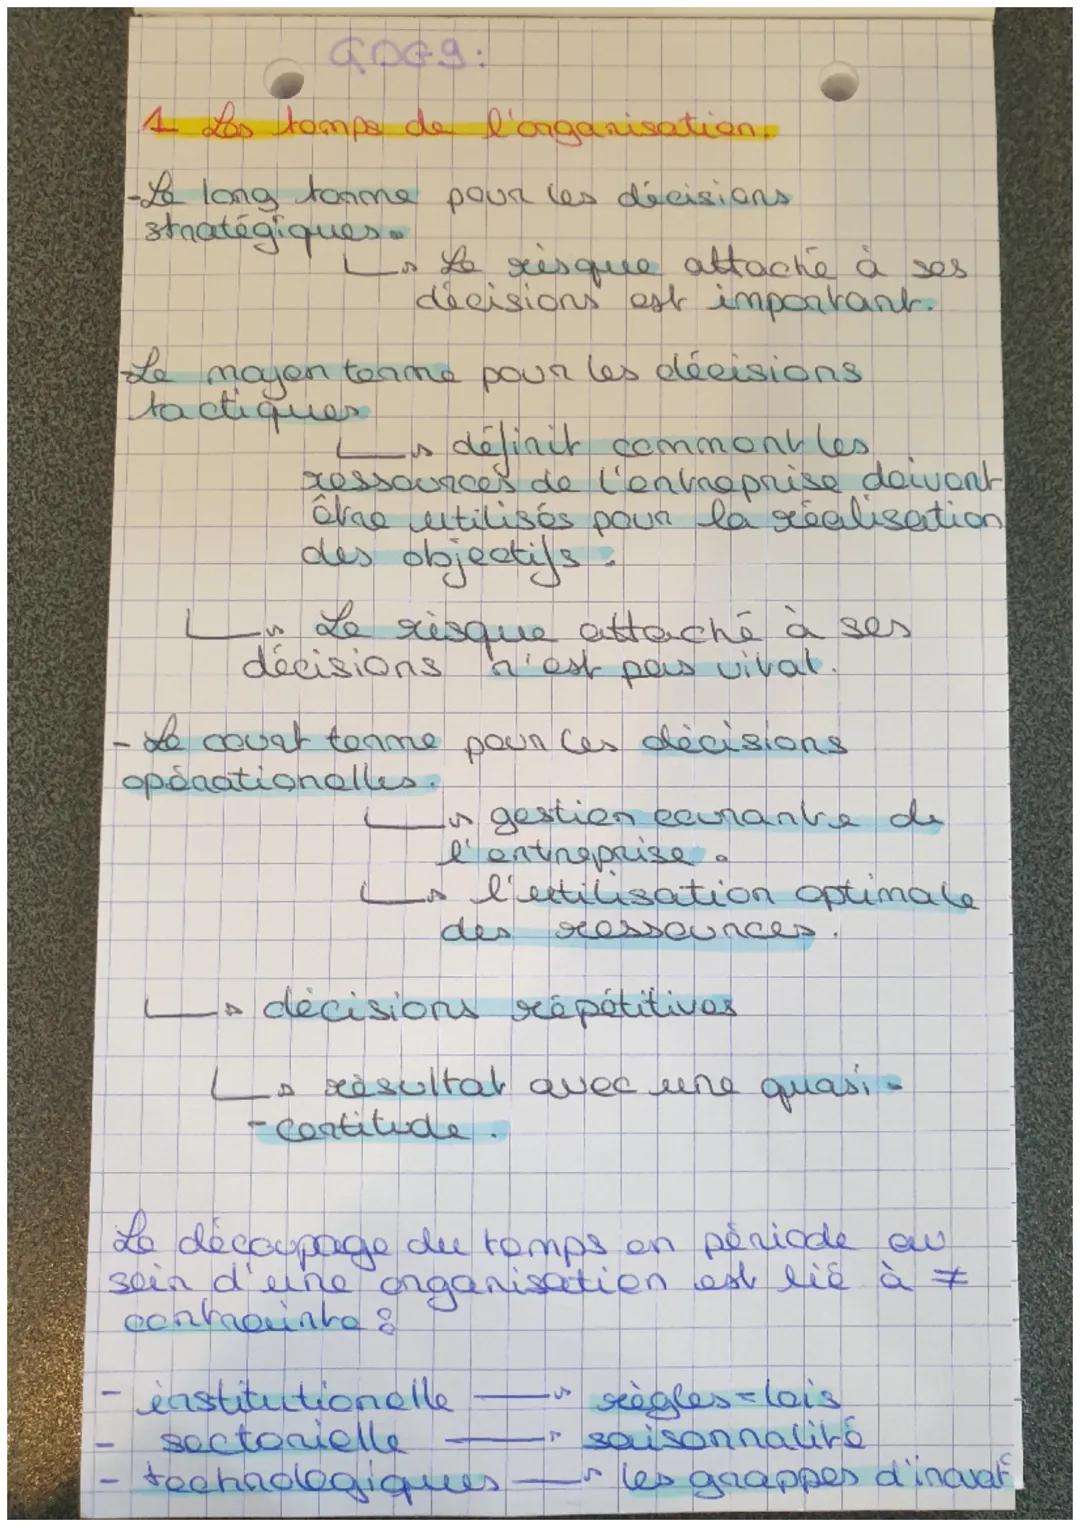 GDG9:
1 Les temps de l'organisation.
-Le long terme pour les décisions
stratégiques.
↳ Le risque attaché à ses
décisions est important.
-Le moyen terme pour les décisions
tactiques
↳ définit comment les
ressources de l'entreprise doivent
être utilisés pour la réalisation
des objectifs.
↳ Le risque attaché à ses
décisions n'est pas vital.
- Le court terme pour les décisions
opérationelles.
↳ gestion courante de
l'entreprise.
↳ l'utilisation optimale
des ressources.
↳ décisions répétitives
↳ résultat avec une quasi-
-certitude.
Le découpage du temps en période au
sein d'une organisation est lié à ≠
contrainte :
- institutionelle → règles = lois
- sectorielle → saisonnalité
- technologiques → les grappes d'inovat